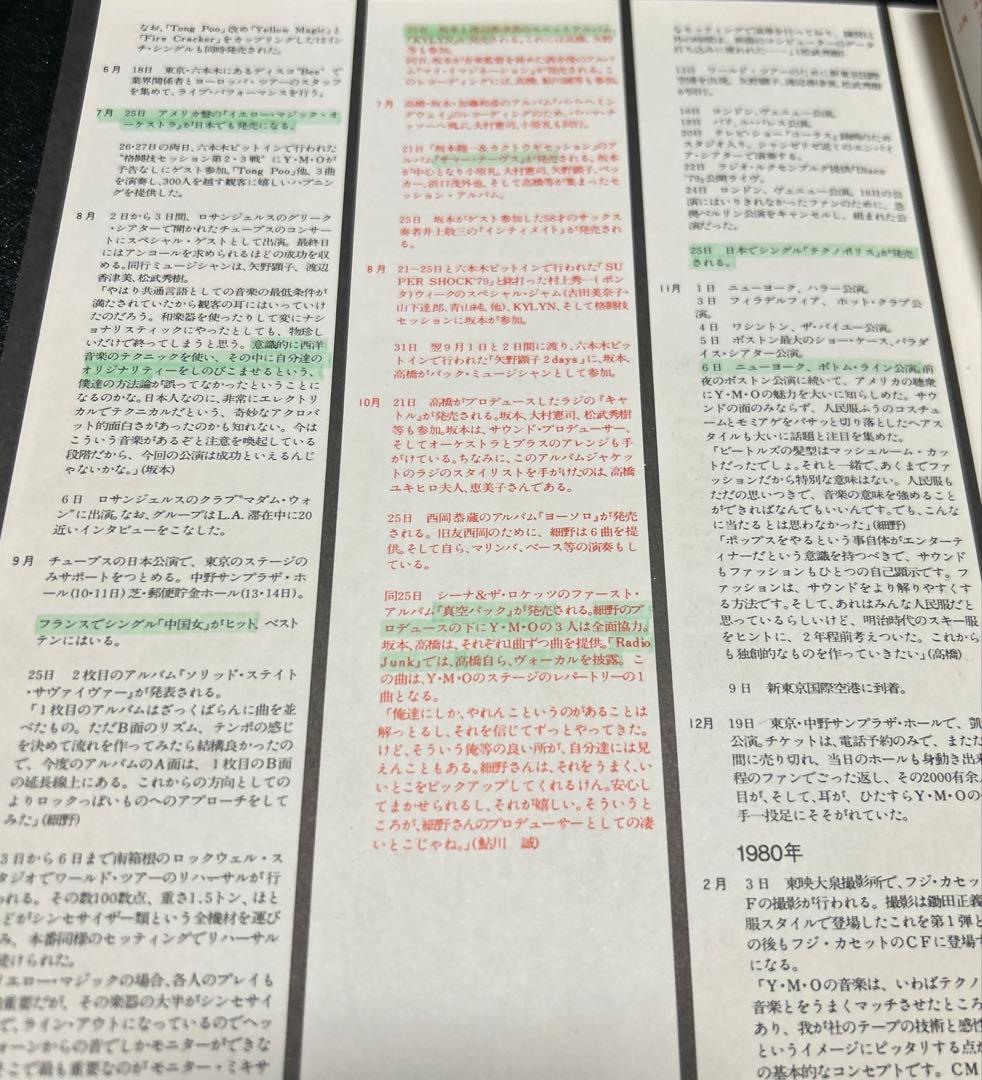 なお、「Tong Poo」改め「Yellow Magic」と
「Fire Cracker」をカップリングした12イン
チ・シングルも同時発売された。
6月 18日 東京・六本木にあるディスコ“Bee”で
業界関係者とヨーロッパ・ツアーのスタッフ
を集めて、ライブ・パフォーマンスを行う。
7月 25日 アメリカ盤の『イエロー・マジック・オ
ーケストラ』が日本でも発売になる。
26・27日の両日、六本木ピットインで行われた
“格闘技セッション第2・3戦”にY・M・Oが
予告なしにゲスト参加。「Tong Poo」他、3曲
を演奏し、300人を越す観客に嬉しいハプニン
グを提供した。
8月 2日から3日間、ロサンジェルスのグリーク
・シアターで開かれたチューブスのコンサー
トにスペシャル・ゲストとして出演。最終日
にはアンコールを求められるほどの成功を収
める。同行ミュージシャンは、矢野顕子、渡辺
香津美、松武秀樹。
「やはり共通言語としての音楽の最低条件が
満たされていたから観客の耳にはいっていけ
たのだろう。和楽器を使ったりして変にナシ
ョナリスティックにやったとしても、物珍し
いだけで終ってしまうと思う。意識的に西洋
音楽のテクニックを使い、その中に自分達の
オリジナリティーをしのびこませるという、
僕達の方法論が誤ってなかったということに
なるのかな。日本人なのに、非常にエレクトリ
カルでテクニカルだという、奇妙なアクロバ
ット的面白さがあったのかも知れない。今は
こういう音楽があるぞと注意を喚起している
段階だから、今回の公演は成功といえるんじ
ゃないかな。」(坂本)
6日 ロサンジェルスのクラブ“マダム・ウォ
ン”に出演。なお、グループはL.A.滞在中に20
近いインタビューをこなした。
9月 チューブスの日本公演で、東京のステージの
みサポートをつとめる。中野サンプラザ・ホ
ール(10・11日)芝・郵便貯金ホール(13・14日)。
フランスでシングル「中国女」がヒット、ベスト
テンにはいる。
25日 2枚目のアルバム『ソリッド・ステイト
・サヴァイヴァー』が発表される。
「1枚目のアルバムはざっくばらんに曲を並
べたもの。ただB面のリズム、テンポの感じ
を決めて流れを作ってみたら結構良かったの
で、今度のアルバムのA面は、1枚目のB面
の延長線上にある。これからの方向としての
よりロックっぽいものへのアプローチをして
みた」(細野)
3日から6日まで南箱根のロックウェル・ス
タジオでワールド・ツアーのリハーサルが行
われる。その数100数点、重さ1.5トン、ほと
どがシンセサイザー類という全機材を運び
み、本番同様のセッティングでリハーサル
続けられた。
イエロー・マジックの場合、各人のプレイも
重要だが、その楽器の大半がシンセサイ
で、ライン・アウトになっているのでヘッ
ォーンからの音でしかモニターができな
そこで最も重要なのがモニター・ミキサ
『KYLYN』が発売される。これには高橋、矢野
等も参加。
7月 高橋・坂本・加藤和彦のアルバム『パパ・ヘミン
グウェイ』のレコーディングのため、バハマ・ナ
ッソーへ飛ぶ。大村憲司、小原礼も同行。
21日 「坂本龍一&カクトウギセッション」のア
ルバム『サマー・ナーヴス』が発売される。坂本
が中心となり小原礼、大村憲司、矢野顕子、ペッ
カー、浜口茂外也、そして高橋等が集まったセ
ッション・アルバム。
25日 坂本がゲスト参加した58才のサックス
奏者井上敬三の『インティメイト』が発売され
る。
8月 21~25日と六本木ピットインで行われた「SU
PER SHOCK'79」と銘打った村上秀一(ポン
タ)ウィークのスペシャル・ジャム(吉田美奈子・
山下達郎、青山純、他)、KYLYN、そして格闘技
セッションに坂本が参加。
31日 翌9月1日と2日間に渡り、六本木ピッ
トインで行われた「矢野顕子2days」に、坂本、
高橋がバック・ミュージシャンとして参加。
10月 21日 高橋がプロデュースしたラジの『キャ
トル』が発売される。坂本、大村憲司、松武秀樹
等も参加。坂本は、サウンド・プロデューサー、
そしてオーケストラとブラスのアレンジも手
がけている。ちなみに、このアルバムジャケッ
トのラジのスタイリストを手がけたのは、高橋
ユキヒロ夫人、恵美子さんである。
25日 西岡恭蔵のアルバム『ヨーソロ』が発売
される。旧友西岡のために、細野は6曲を提
供。そして自ら、マリンバ、ベース等の演奏もし
ている。
同25日 シーナ&ザ・ロケッツのファースト・
アルバム『真空パック』が発売される。細野のプ
ロデュースの下にY・M・Oの3人は全面協力。
坂本、高橋は、それぞれ1曲ずつ曲を提供。「Radio
Junk」では、高橋自ら、ヴォーカルを披露。こ
の曲は、Y・M・Oのステージのレパートリーの1
曲となる。
「俺達にしか、やれんこというのがあることは
解っとるし、それを信じてずっとやってきた。
けど、そういう俺等の良い所が、自分達には見
えんこともある。細野さんは、それをうまく、い
いとこをピックアップしてくれるけん。安心し
てまかせられるし、それが嬉しい。そういうと
ころが、細野さんのプロデューサーとしての凄
いとこじゃね。」(鮎川 誠)
13日 ワールド・ツアーのために新東京国際
16日 ロンドン、ヴェニュー公演。
18日 パリ、ル・パレス公演。
24日 ロンドン、ヴェニュー公演。16日の公
演にはいりきれなかったファンのために、急
拠ベルリン公演をキャンセルし、組まれた公
演だった。
25日 日本でシングル「テクノポリス」が発売
される。
11月 1日 ニューヨーク、ハラー公演。
3日 フィラデルフィア、ホット・クラブ公
演。
4日 ワシントン、ザ・バイユー公演。
5日 ボストン最大のショー・ケース、パラダ
イス・シアター公演。
6日 ニューヨーク、ボトム・ライン公演。前
夜のボストン公演に続いて、アメリカの聴衆
にY・M・Oの魅力を大いに知らしめた。サウ
ンドの面のみならず、人民服ふうのコスチュ
ームとモミアゲをバサッと切り落としたヘアス
タイルも大いに話題と注目を集めた。
「ビートルズの髪型はマッシュルーム・カッ
トだったでしょ。それと一緒で、あくまでファ
ッションだから特別な意味はない。人民服も
ただの思いつきで、音楽の意味を強めること
ができればなんでもいいんです。でも、こんな
に当たるとは思わなかった」(細野)
「ポップスをやるという事自体がエンターテ
ィナーだという意識を持つべきで、サウンド
もファッションもひとつの自己顕示です。フ
ァッションは、サウンドをより解りやすくす
る方法です。そして、あれはみんな人民服だと
思っているらしいけど、明治時代のスキー服
をヒントに、2年程前考えついた。これから
も独創的なものを作っていきたい」(高橋)
9日 新東京国際空港に到着。
12月 19日 東京・中野サンプラザ・ホールで、凱
公演。チケットは、電話予約のみで、またた
間に売り切れ、当日のホールも身動き出来
程のファンでごった返し、その2000有余人
目が、そして、耳が、ひたすらY・M・Oの
手一投足にそそがれていた。
1980年
2月 3日 東映大泉撮影所で、フジ・カセッ
Fの撮影が行われる。撮影は鋤田正義
服スタイルで登場したこれを第1弾と
の後もフジ・カセットのCFに登場す
になる。
「Y・M・Oの音楽は、いわばテクノ
音楽とをうまくマッチさせたところ
あり、我が社のテープの技術と感性
というイメージにピッタリする点が
の基本的なコンセプトです。CM